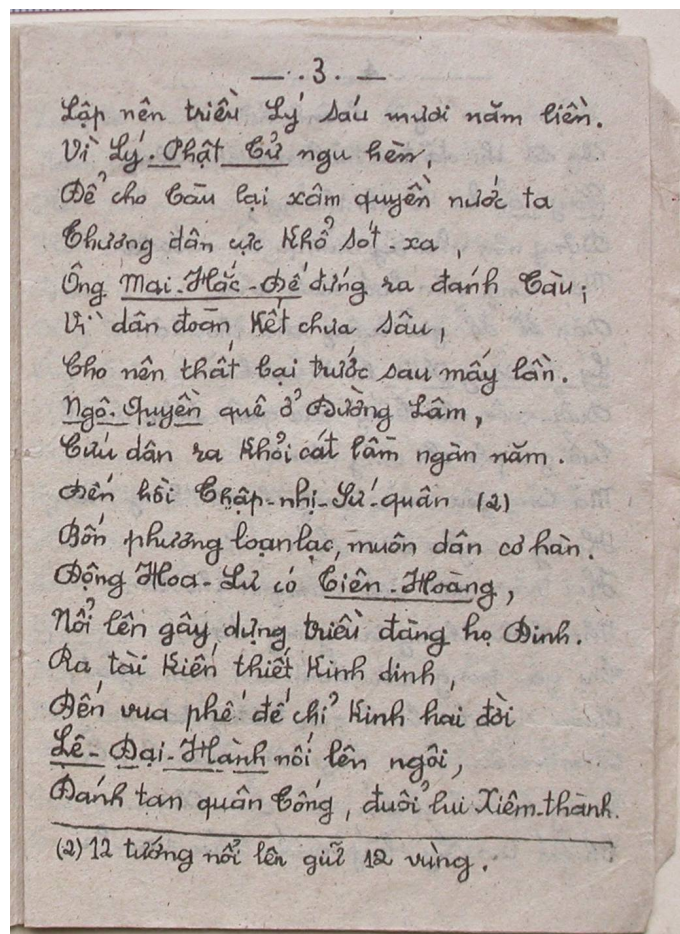 — . 3 . —
Lập nên triều Lý sáu mươi năm liền.
Vì Lý. Phật Tử ngu hèn,
Để cho Tàu lại xâm quyền nước ta
Thương dân cực khổ sót - xa,
Ông Mai - Hắc - Đế đứng ra đánh Tàu;
Vì dân đoàn kết chưa sâu,
Cho nên thất bại trước sau mấy lần.
Ngô. Quyền quê ở Đường Lâm,
Cứu dân ra khỏi cát lầm ngàn năm.
Đến hồi Thập - nhị - Sứ - quân (2)
Bốn phương loạn lạc, muôn dân cơ hàn.
Động Hoa - Lư có Tiên - Hoàng,
Nổi lên gây dựng triều đàng họ Đinh.
Ra tài kiến thiết kinh dinh,
Đến vua phế đế chỉ kinh hai đời
Lê - Đại - Hành nối lên ngôi,
Đánh tan quân Tống, đuổi lui Xiêm - thành.
(2) 12 tướng nổi lên giữ 12 vùng.